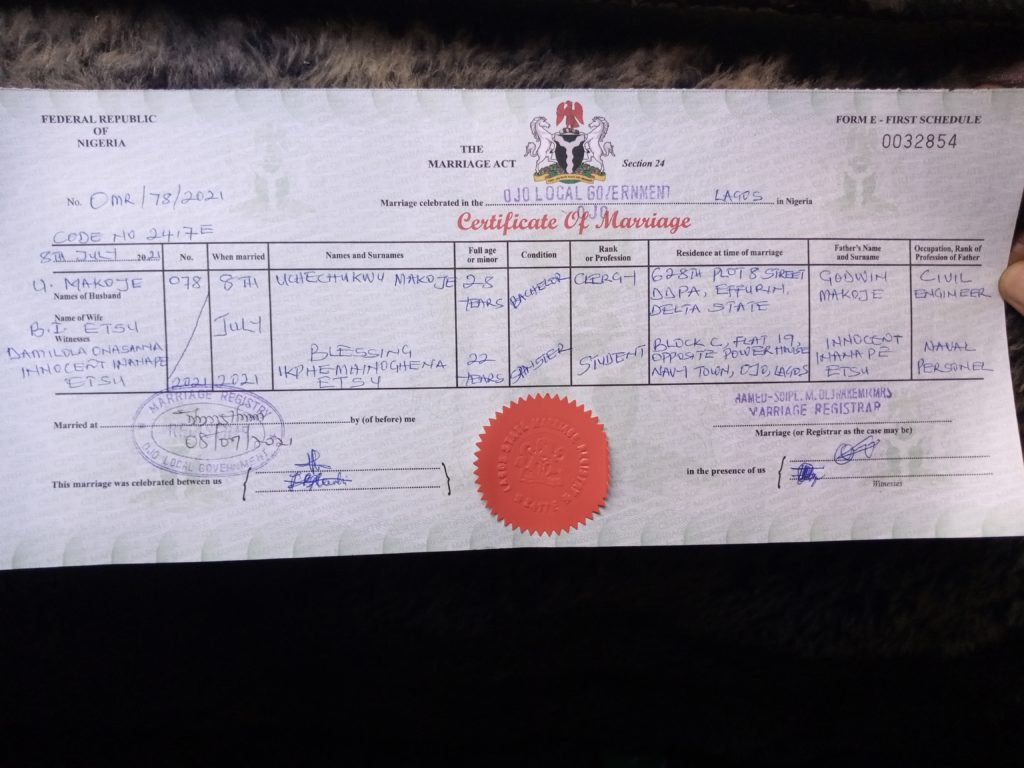 FEDERAL REPUBLIC
OF
NIGERIA
THE
MARRIAGE ACT
Section 24
FORM E - FIRST SCHEDULE
0032854
No. OMR/78/2021
Marriage celebrated in the OJO LOCAL GOVERNMENT LAGOS in Nigeria
OJO
Certificate Of Marriage
CODE NO 2417E
8TH JULY 2021
No.
When married
Names and Surnames
Full age
or minor
Condition
Rank
or Profession
Residence at time of marriage
Father's Name
and Surname
Occupation, Rank of
Profession of Father
U. MAKOJE
Names of Husband
078
8TH
UCHECHUKWU MAKOJE
28
YEARS
BACHELOR
CLERGY
628TH PLOT 8 STREET
DDPA, EFFURUN,
DELTA STATE
GODWIN
MAKOJE
CIVIL
ENGINEER
Name of Wife
B.I. ETSU
Witnesses
DAMILOLA ONASANYA
INNOCENT INANAPE
ETSU
2021
July
2021
BLESSING
IKPHEMHINOGHENA
ETSU
22
YEARS
SPINSTER
STUDENT
BLOCK C, FLAT 19,
OPPOSITE POWER HOUSE
NAVY TOWN, OJO, LAGOS
INNOCENT
INANAPE
ETSU
NAVAL
PERSONEL
MARRIAGE REGISTRY
08/07/2021
OJO LOCAL GOVERNMENT
Married at by (of before) me
MARRIAGE REGISTRAR
Marriage (or Registrar as the case may be)
This marriage was celebrated between us
in the presence of us
Witnesses